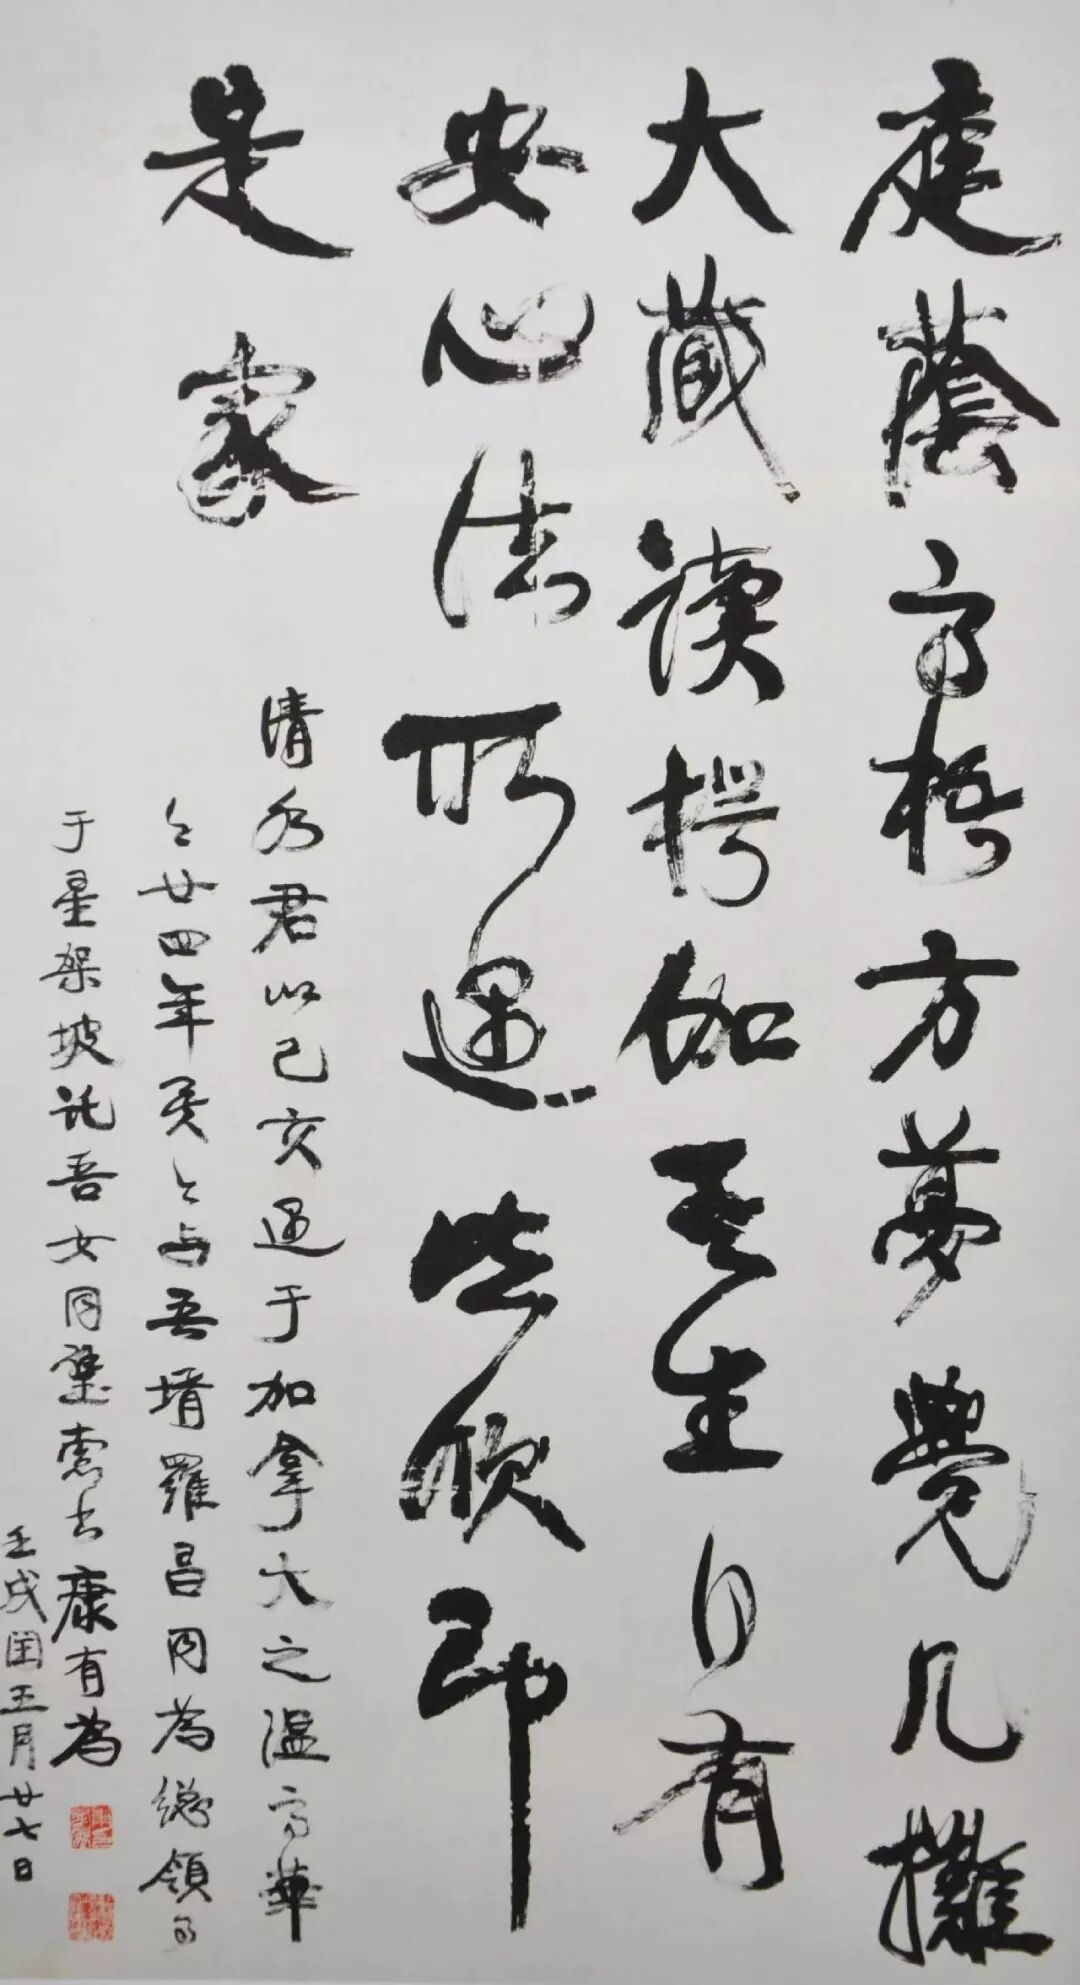 庭蔭高梧方夢覺几攤
大藏讀楞伽吾生自有
安心法所遇皆欣即
是家
清水君以己亥遇于加拿大之溫高華
今廿四年矣今与吾壻羅昌同為總領事
于星架坡託吾女同璧索书康有為
壬戌閏五月廿七日